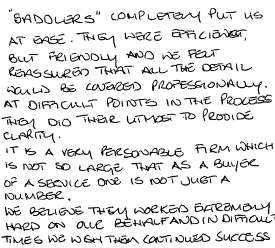 "SADDLERS" COMPLETELY PUT US
AT EASE. THEY WERE EFFICIENT,
BUT FRIENDLY AND WE FELT
REASSURED THAT ALL THE DETAIL
WOULD BE COVERED PROFESSIONALLY.
AT DIFFICULT POINTS IN THE PROCESS
THEY DID THEIR UTMOST TO PROVIDE
CLARITY.
IT IS A VERY PERSONABLE FIRM WHICH
IS NOT SO LARGE THAT AS A BUYER
OF A SERVICE ONE IS NOT JUST A
NUMBER.
WE BELIEVE THEY WORKED EXTREMELY
HARD ON OUR BEHALF AND IN DIFFICULT
TIMES WE WISH THEM CONTINUED SUCCESS